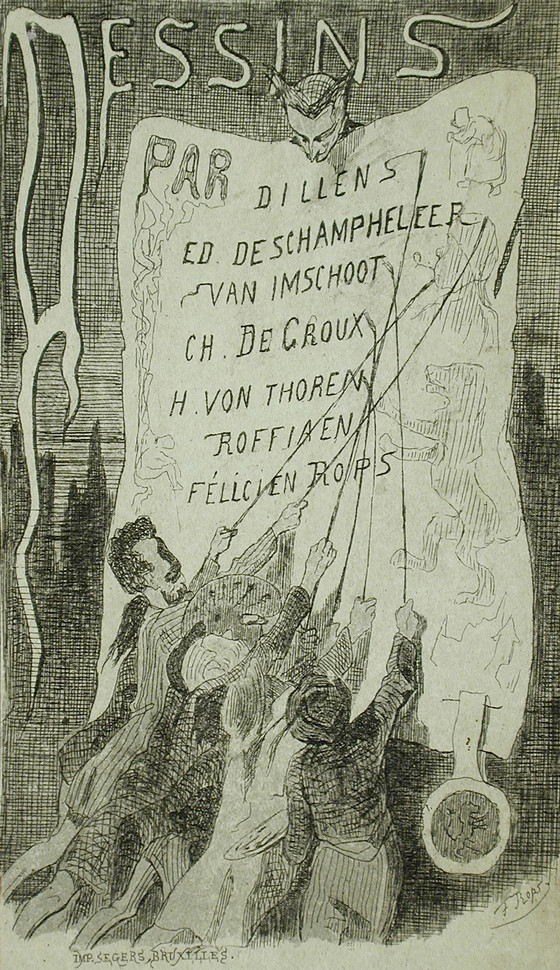 DESSINS
PAR
DILLENS
ED. DESCHAMPHELEER
VAN IMSCHOOT
CH. DE GROUX
H. VON THOREN
ROFFIAEN
FÉLICIEN ROPS
F. Rops
IMP. SEGERS, BRUXILLES.